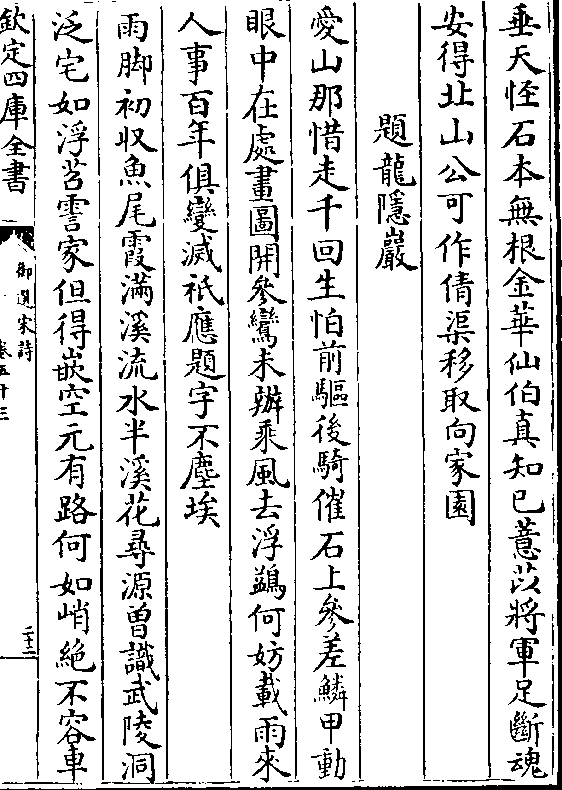 垂天怪石本無根金華仙伯真知已薏苡將軍足斷魂
安得北山公可作倩渠移取向家園
題龍隱巖
愛山那惜走千回生怕前驅後騎催石上參差鱗甲動
眼中在處畫圖開參鸞未辦乘風去浮鷁何妨載雨來
人事百年俱變滅祇應題字不塵埃
雨脚初収魚尾霞滿溪流水半溪花尋源曽識武陵洞
泛宅如浮苕霅家但得嵌空元有路何如峭絶不容車
欽定四庫全書
御選宋詩
卷五十三
二十二